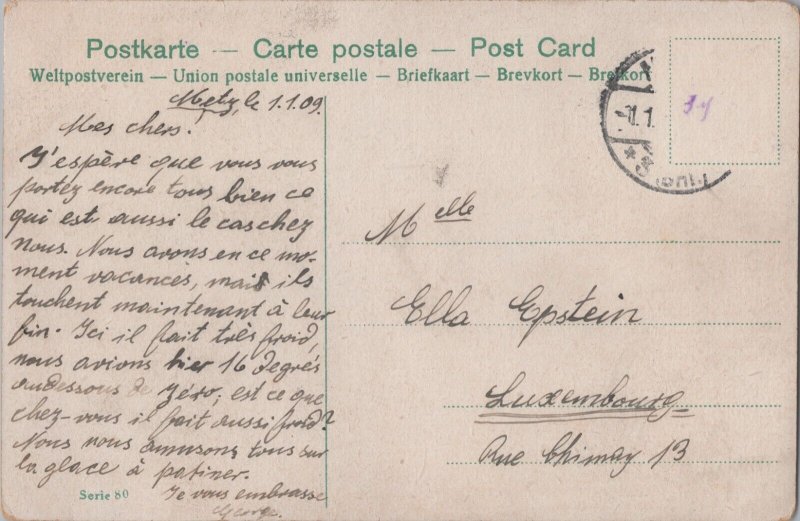 Postkarte — Carte postale — Post Card
Weltpostverein — Union postale universelle — Briefkaart — Brevkort — Brefkort
Metz, le 1.1.09.
Mes chers!
J'espère que vous vous
portez encore tous bien ce
qui est aussi le cas chez
nous. Nous avons en ce mo-
ment vacances, mais ils
touchent maintenant à leur
fin. Ici il fait très froid,
nous avions hier 16 degrés
audessous de zéro; est ce que
chez-vous il fait aussi froid?
Nous nous amusons tous sur
la glace à patiner.
Je vous embrasse
George.
Serie 80
Melle
Ella Epstein
Luxembourg
Rue Chimay 13
-1.1
*3